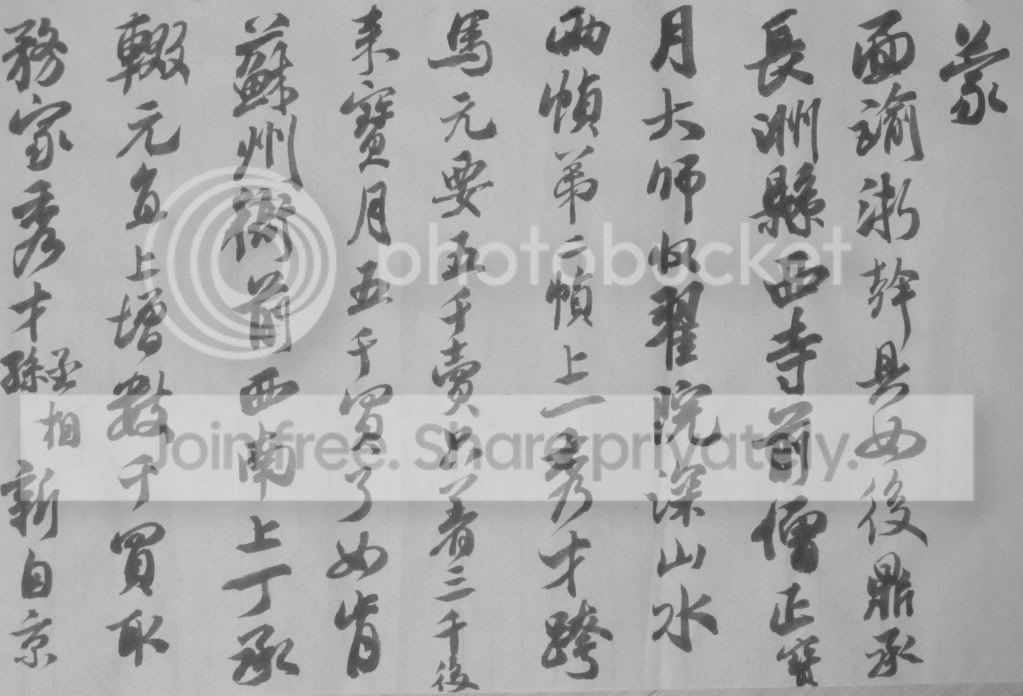 蒙
面諭浙幹具如後鼎承
長洲縣西寺前僧正寶
月大師收翟院深山水
兩幀第二幀上一秀才跨
馬元要五千賣只著三千後
来寶月五千買了如肯
蘇州衙前西南上丁承
輟元直上增數千買取
務家秀才丞相孫新自京
photobucket
Join free. Share privately.